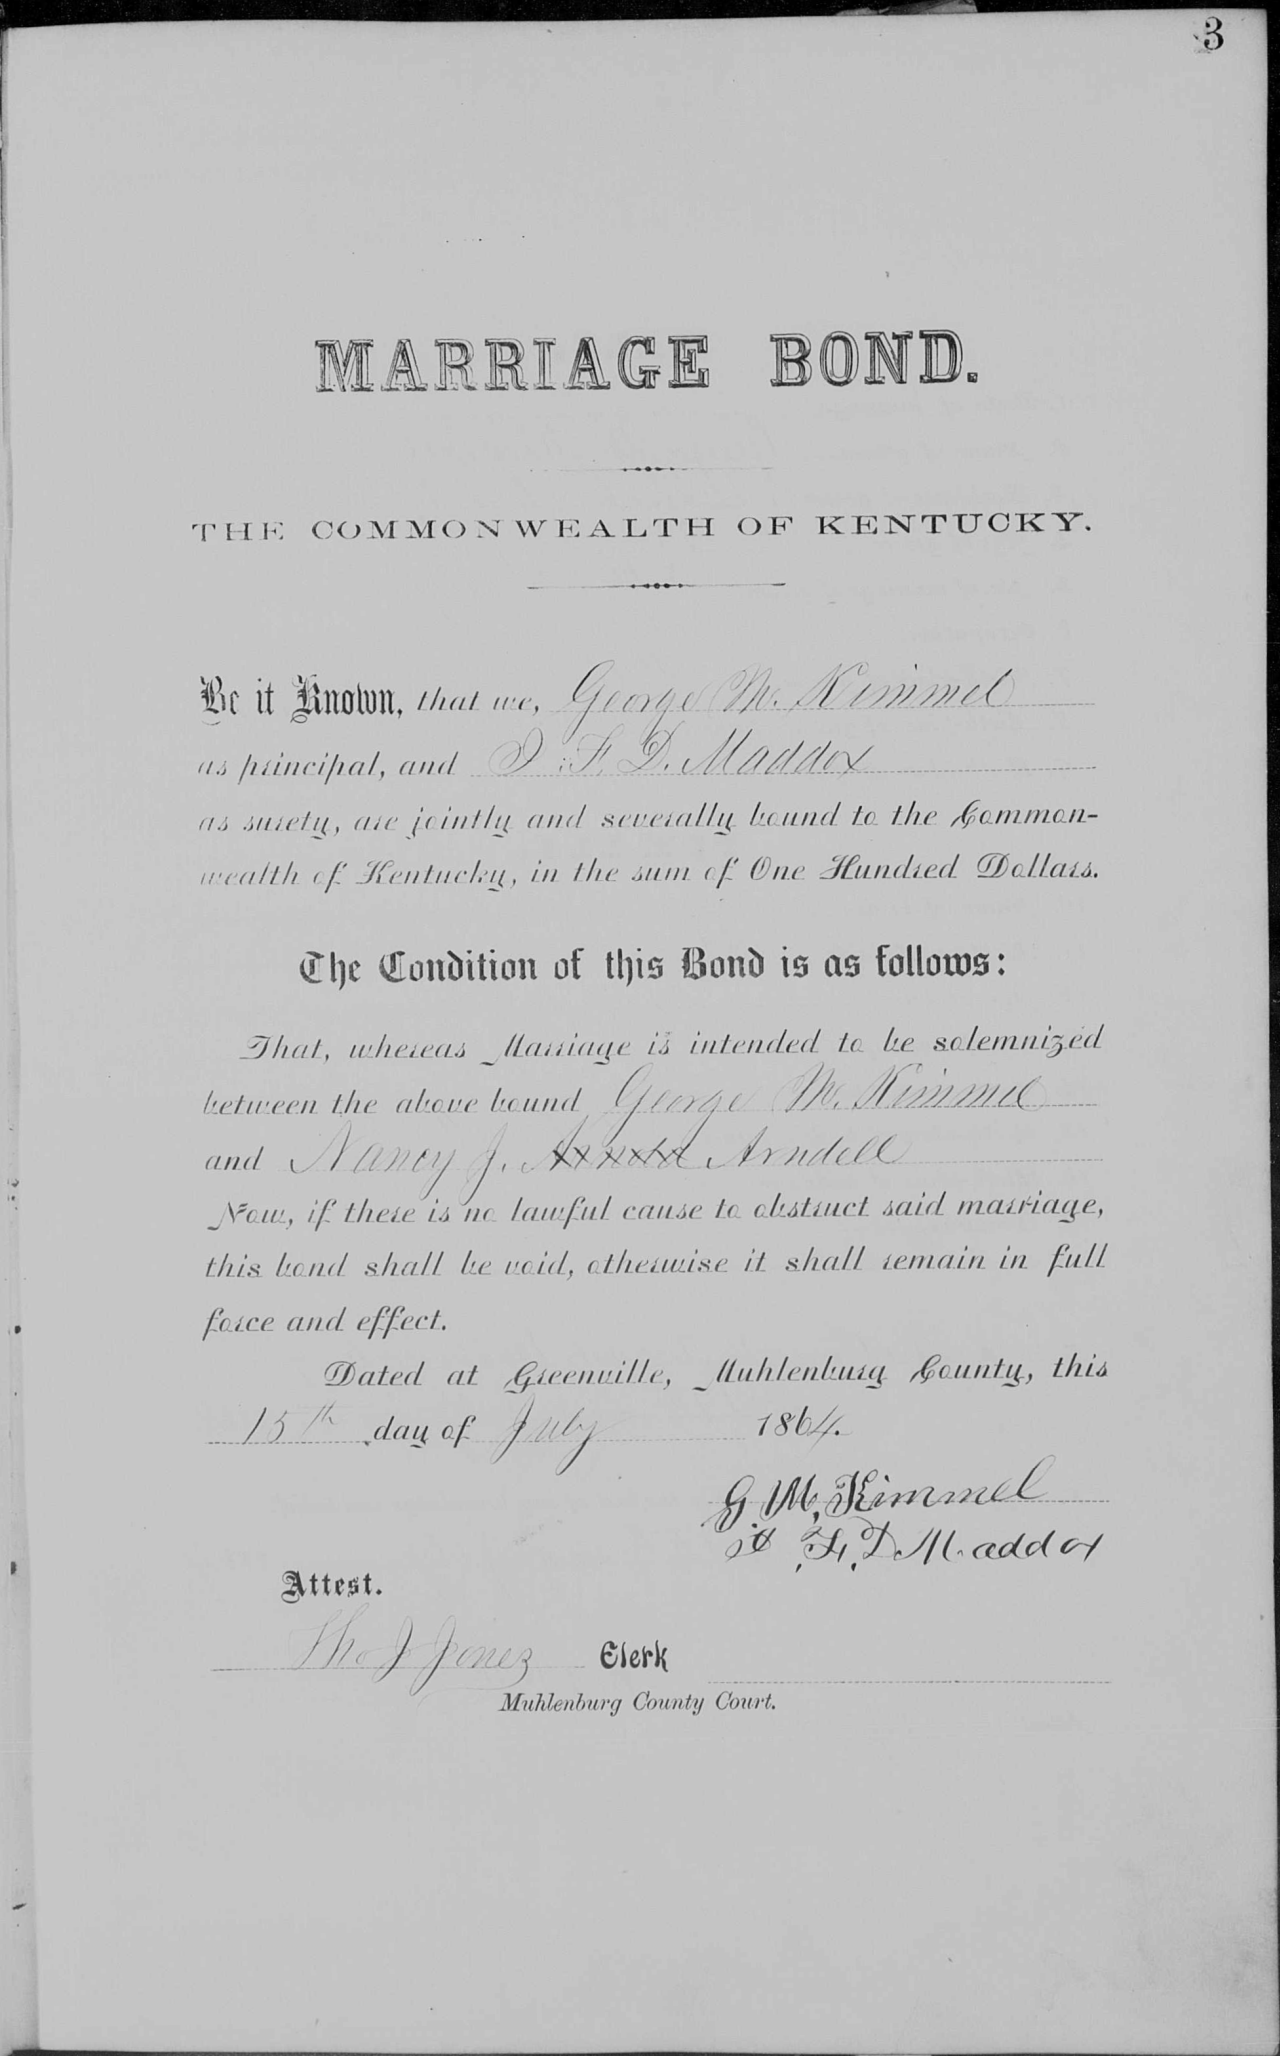 3
MARRIAGE BOND.
THE COMMONWEALTH OF KENTUCKY.
Be it Known, that we, George M. Kimmel
as principal, and I. F. D. Maddox
as surety, are jointly and severally bound to the Common-
wealth of Kentucky, in the sum of One Hundred Dollars.
The Condition of this Bond is as follows:
That, whereas Marriage is intended to be solemnized
between the above bound George M. Kimmel
and Nancy J. Arnold Arndell
Now, if there is no lawful cause to obstruct said marriage,
this bond shall be void, otherwise it shall remain in full
force and effect.
Dated at Greenville, Muhlenburg County, this
15th day of July 1864.
G. M. Kimmel
F. D. Maddox
Attest.
Tho J Jones Clerk
Muhlenburg County Court.